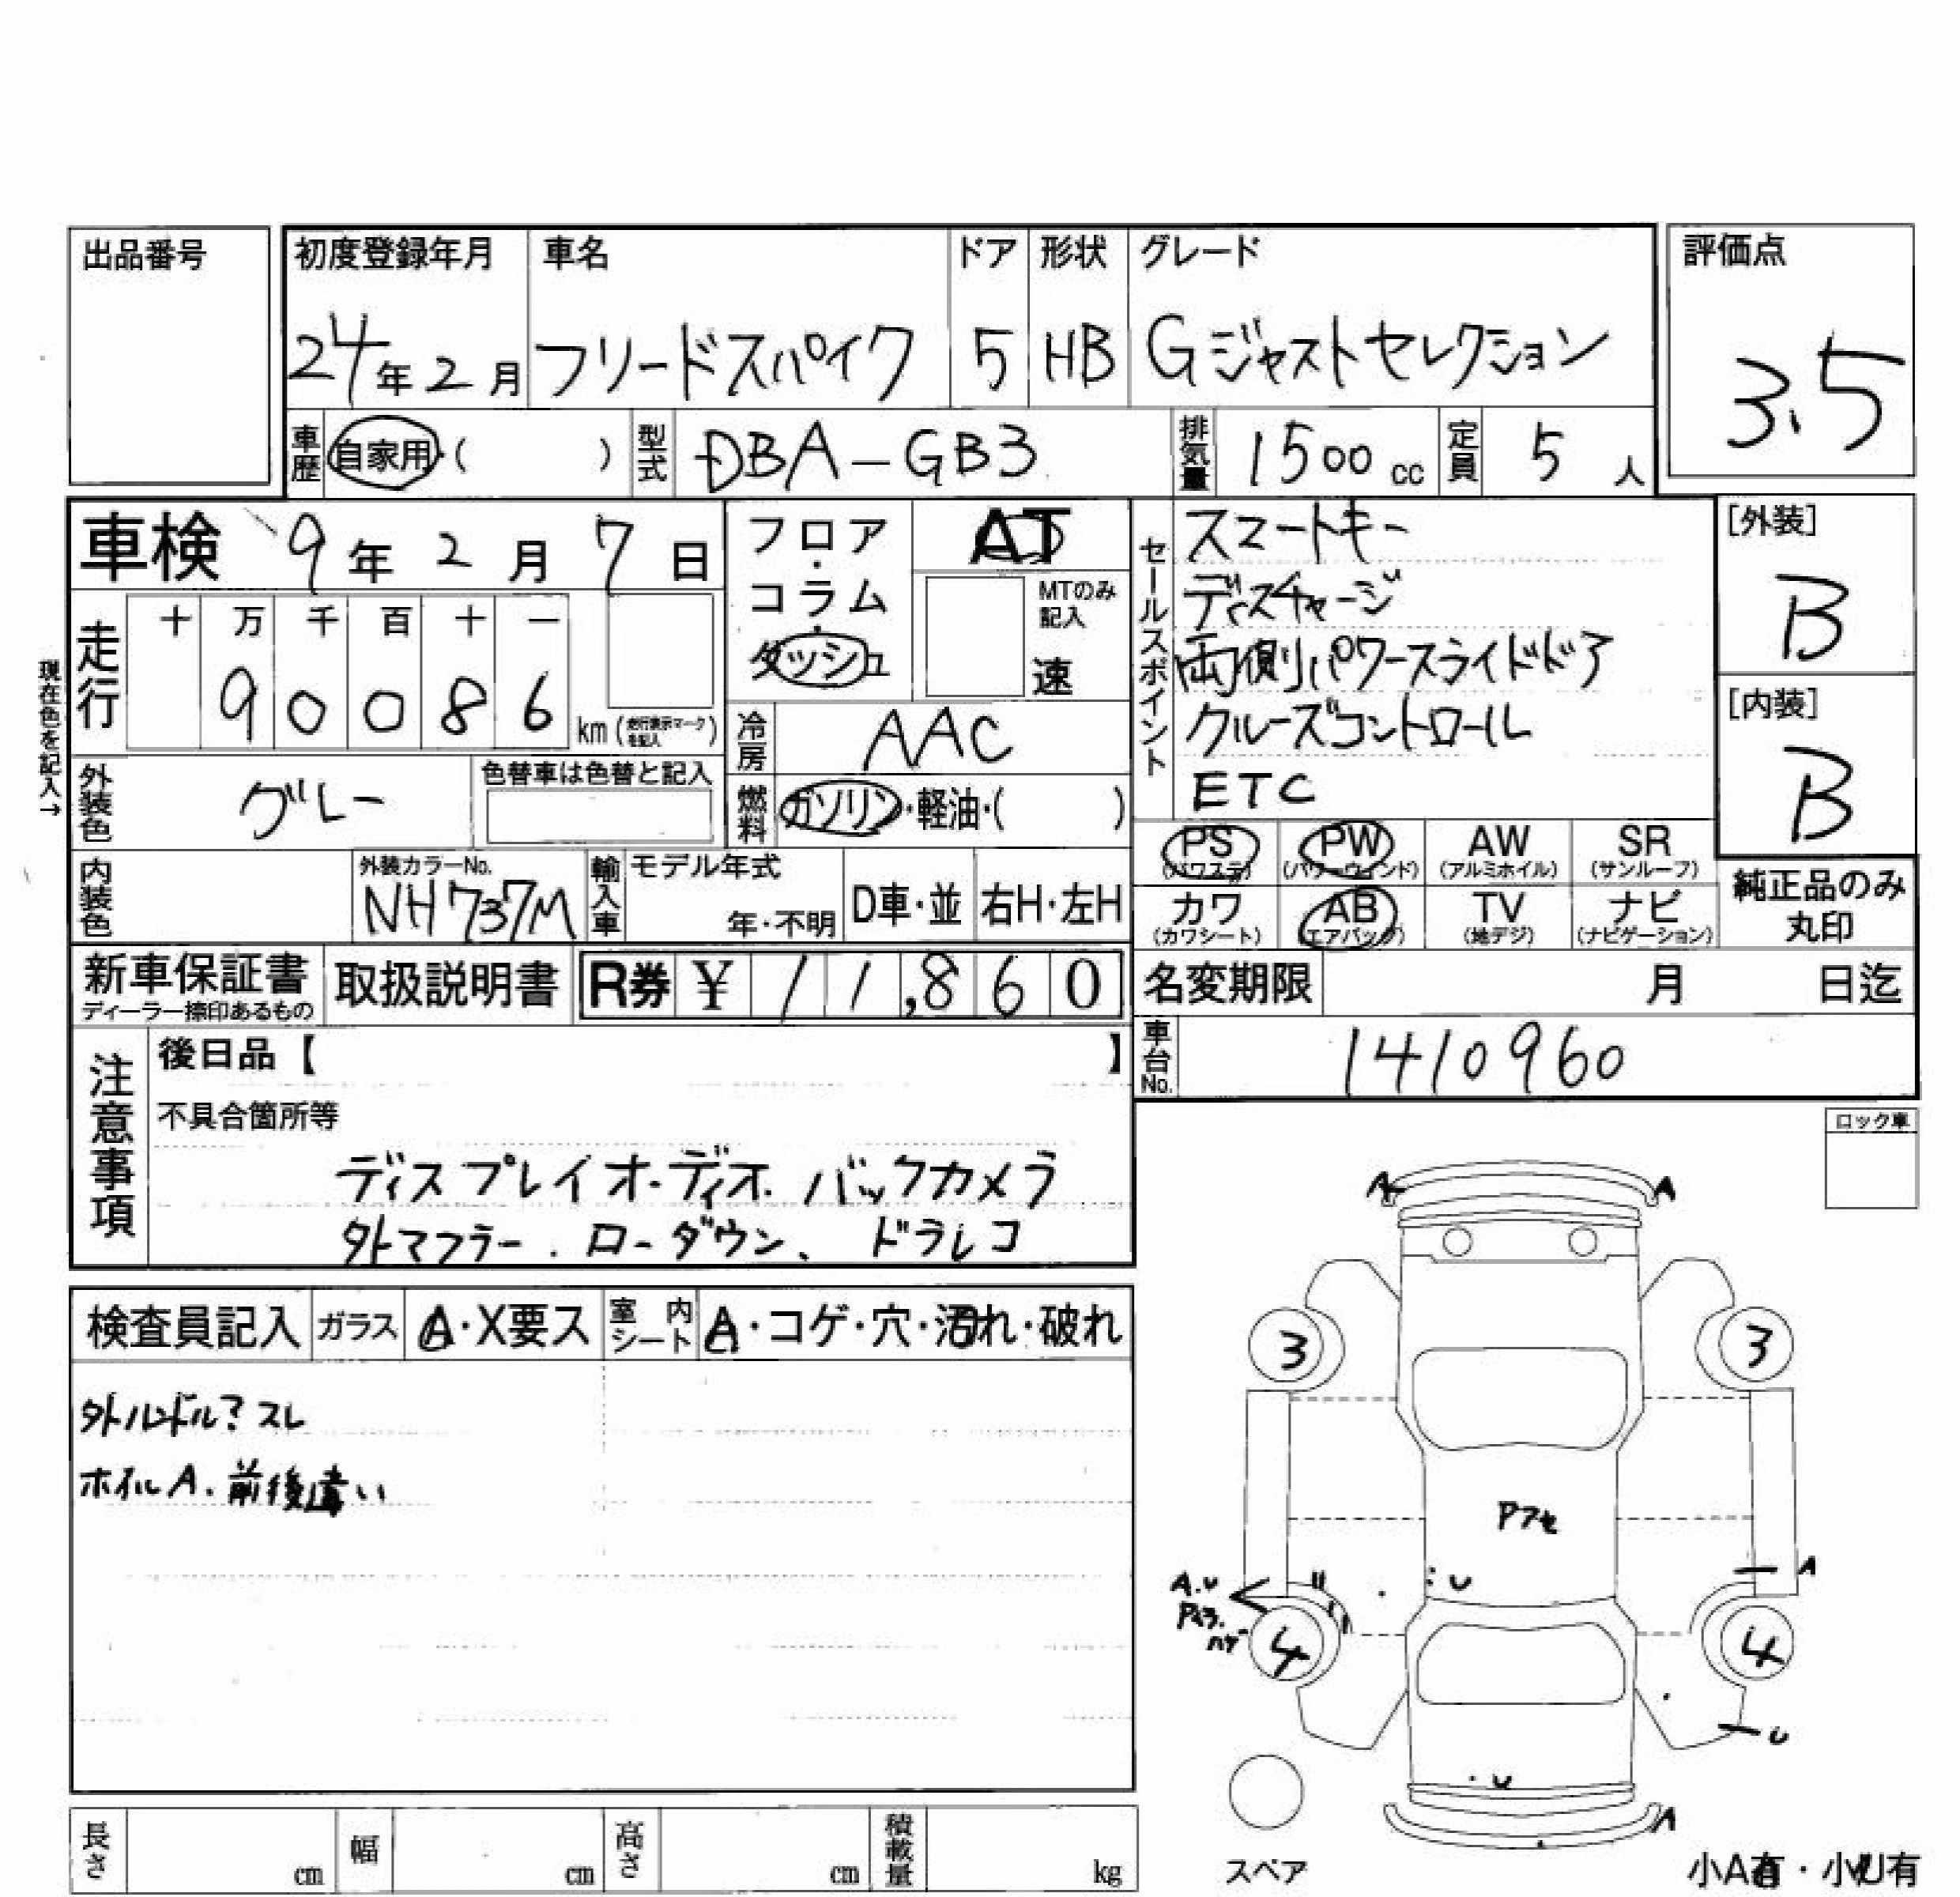 出品番号
初度登録年月 車名 ドア 形状 グレード 評価点
24年2月 フリードスパイク 5 HB Gジャストセレクション 3.5
車歴 自家用・( ) 型式 DBA-GB3 排気量 1500cc 定員 5人
車検 9年2月7日 フロア・コラム・ダッシュ AT
MTのみ記入 速
現在色を記入→
走行 十 万 千 百 十 一
9 0 0 8 6 km (走行表示マークを記入)
冷房 AAC
外装色 グレー 色替車は色替と記入
燃料 ガソリン・軽油・( )
セールスポイント
スマートキー
ディスチャージ
両側パワースライドドア
クルーズコントロール
ETC
[外装]
B
[内装]
B
PS (パワステ) PW (パワーウインド) AW (アルミホイル) SR (サンルーフ)
カワ (カワシート) AB (エアバッグ) TV (地デジ) ナビ (ナビゲーション)
純正品のみ
丸印
内装色 外装カラーNo. NH737M 輸入車 モデル年式 年・不明 D車・並 右H・左H
新車保証書 ディーラー捺印あるもの 取扱説明書 R券 ¥ 11,860
名変期限 月 日迄
車台No. 1410960
注意事項
後日品【 】
不具合箇所等
ディスプレイオーディオ. バックカメラ
外マフラー. ローダウン、ドラレコ
ロック車
検査員記入 ガラス A・X要ス 室内シート A・コゲ・穴・汚れ・破れ
スレ
ホイルA. 前後違い
A A
3 3
Pアセ
A.U U A
ハゲ
4 4
U
U
A
スペア
長さ cm 幅 cm 高さ cm 積載量 kg
小A有・小U有